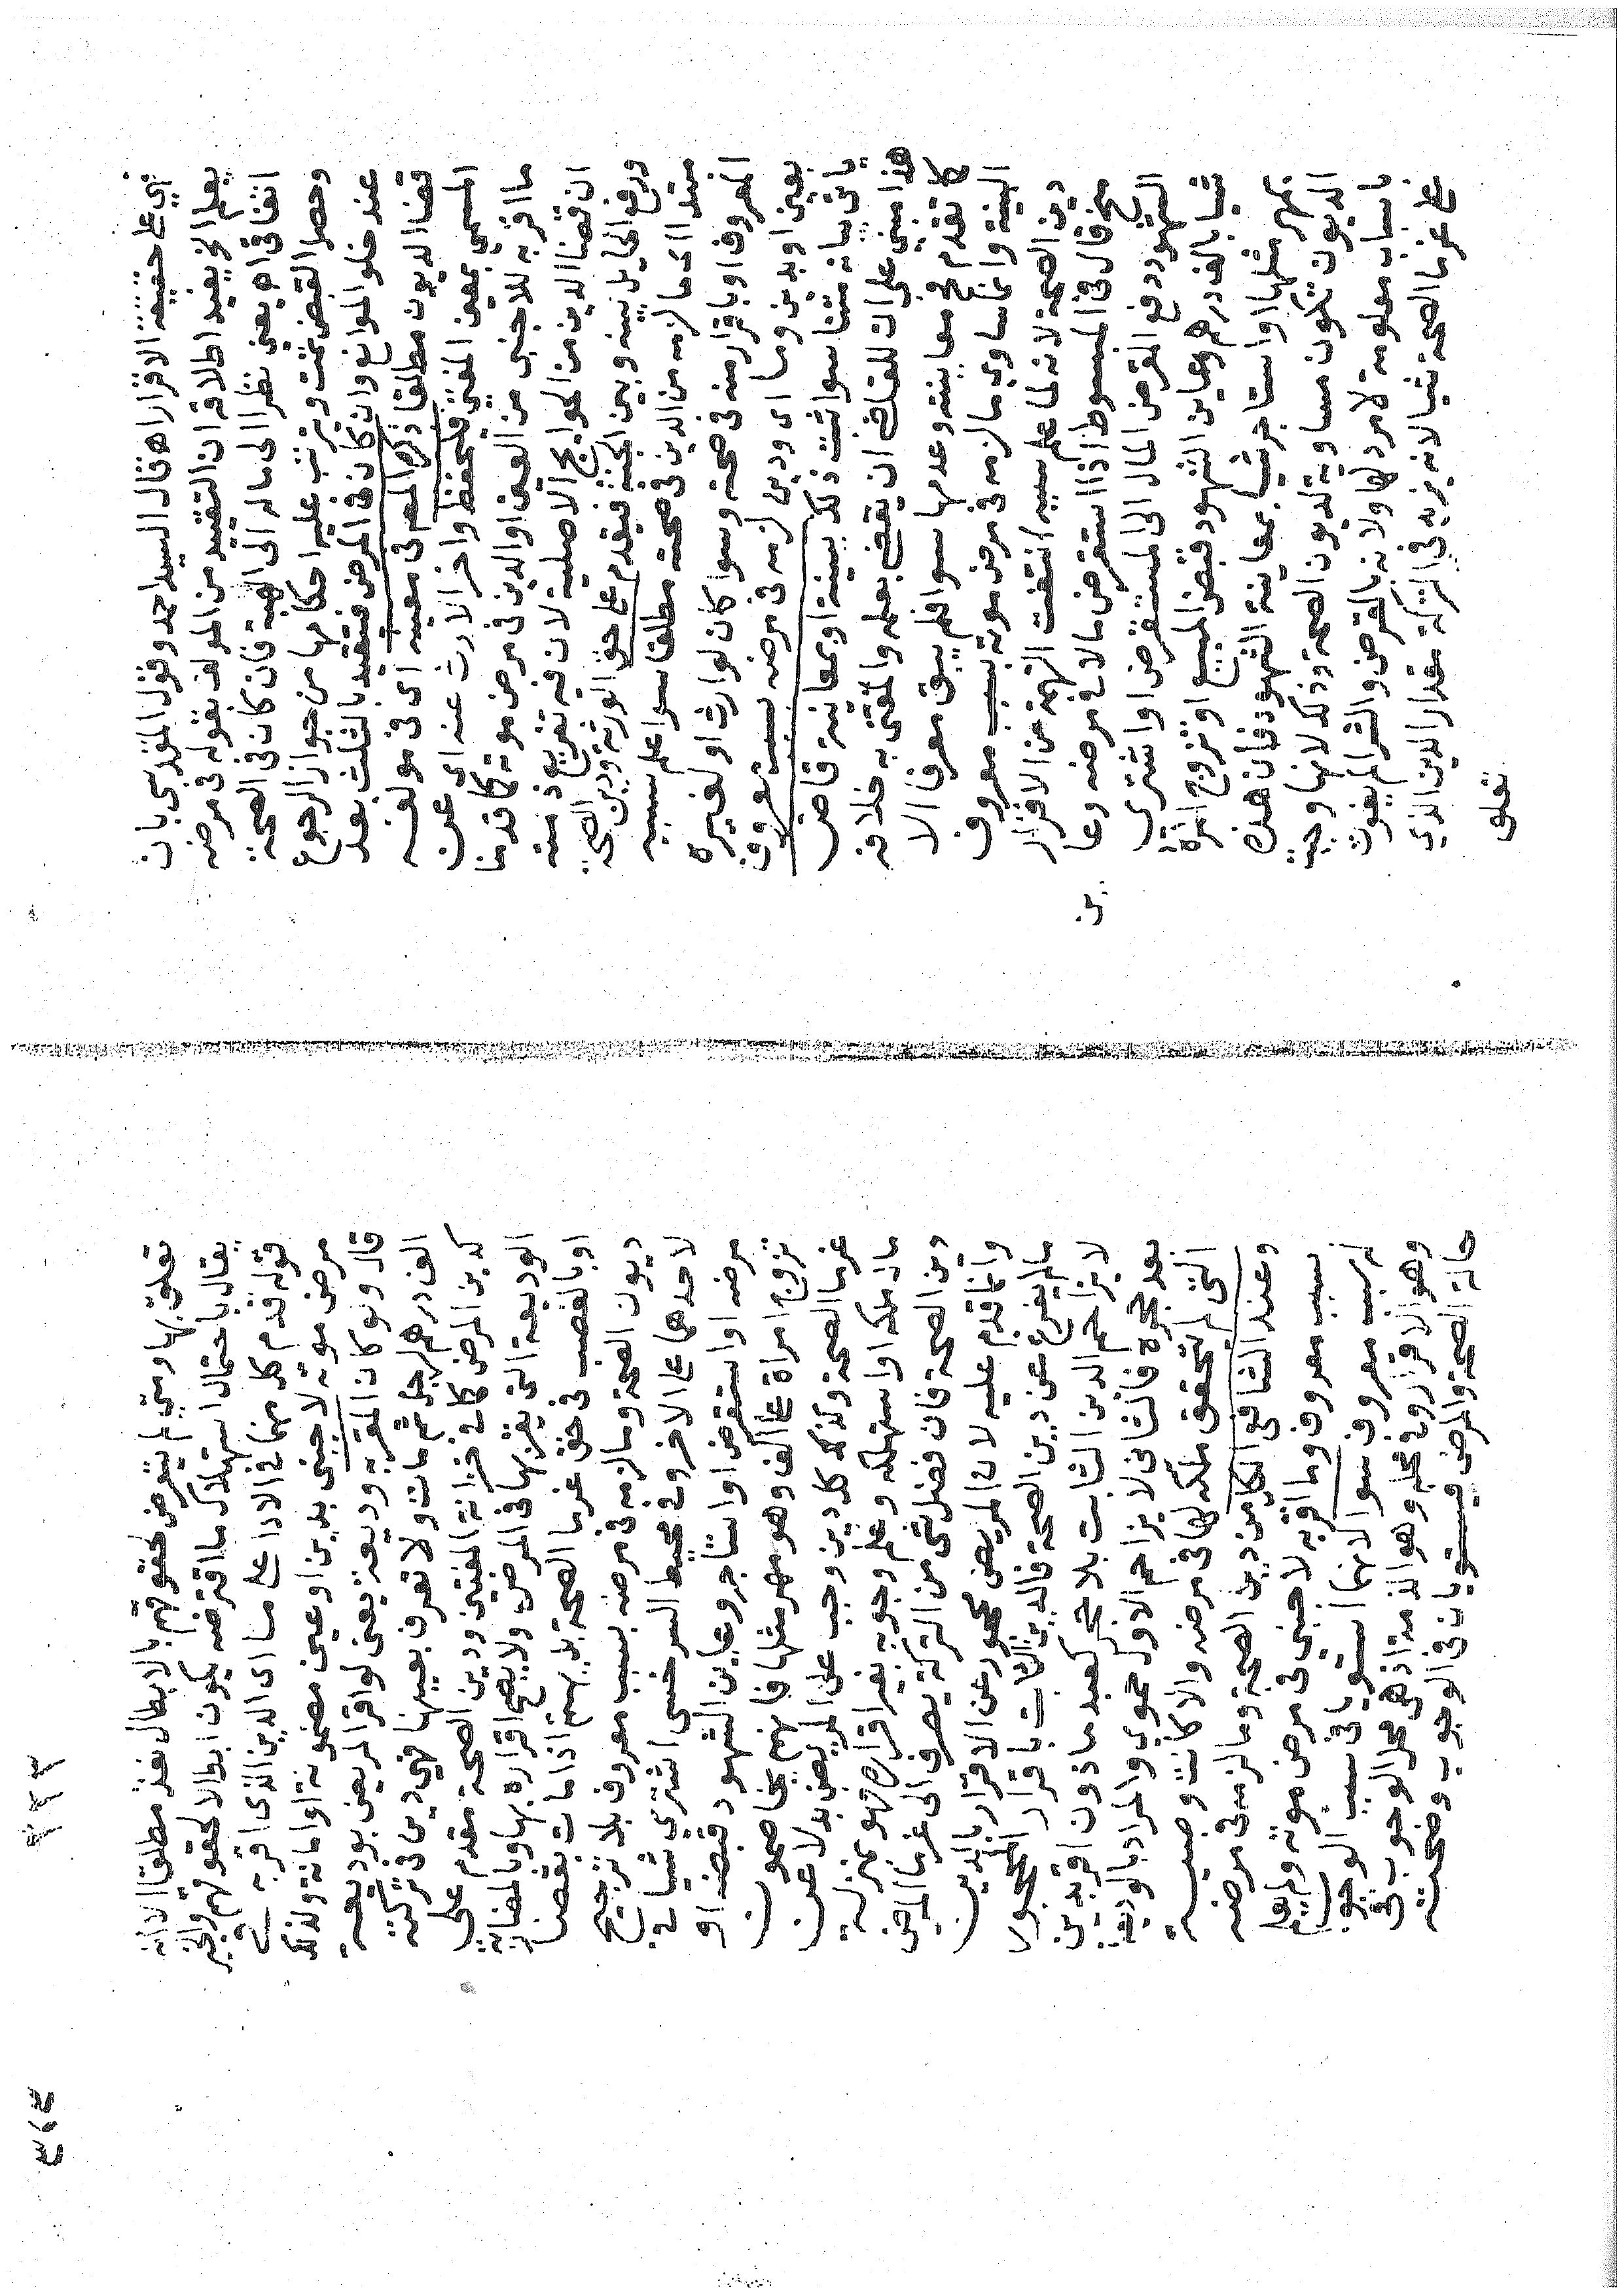 بني على حقيقة الاقرار اه قال السيد احمد وقول المقدسي بان
يعلم الخ يفيد اطلاقه ان التقييد من المولف بقوله في مرضه
اتفاقي اه يعني نظرا الى ماله الى الهبة فان كان في الصحة
وحصل القبض تمت وترتب عليه احكامها من جواز الرجوع
عند خلو الموانع وان كان في المرض فتتقيد بالثلث بعد
قضا الديون مطلقا ذكره المص في معينه اى في مولفه
المسمي بمعين المفتي فليحفظ واخر الارث عنه اى عن
ما اقر به للاجنبي من العين او الدين في مرض موته كما قدمنا
ان قضا الدين من الحوايج الاصلية لان فيه تفريغ ذمته
ورفع الحايل بينه وبين الجنة فيقدم على حق الورثة ودين الصحة
مبتدا اى ما لزمه من الدين في صحته مطلقا سوا علم سببه
المعروف او باقرار منه في صحته وسوا كان لوارث او لغيره
بعين او بدين وما اى ودين لزمه في مرضه بسبب معروف
ياتي بيانه متنا سوا ثبت ذلك ببينة او بمعاينة قاض
هذا مبني على ان للقاضي ان يقضي بعلمه والمفتى به خلافه
كما تقدم فح معاينته وعدمها سوا فلم يبق معرفا الا
البينة وانما ساوي ما لزمه في مرض موته بسبب معروف
دين الصحة لانه لما علم سببه انتفت التهمة عن الاقرار
منح قال في المبسوط اذا استقرض مالا في مرضه وعاين
الشهود دفع المقرض المال الى المستقرض او اشترى
شيا بالف درهم وعاين الشهود قبض المبيع او تزوج امراة
بمهر مثلها او استاجر شيا بمعاينة الشهود فان هذه
الديون تكون مساوية لديون الصحة وذلك لانها وجبت
باسباب معلومة لا مرد لها ولانه بالقرض والشرا لم يفوت
على غرما الصحة شيا لانه يزيد في التركة مقدار الدين الذي
تعلق
تعلق بها ومتي لم يتعرض لحقوقهم بالابطال نفذ مطلقا الا انه
يقال باحتمال استهلاك ما اقترضه يكون ابطالا لحقوقهم والخبر
قوله قدم كل منهما في الادا على ما اى الدين الذى اقر به في
مرض موته لاجنبي بدين او عين مضمونة او امانة ولذلك
قال ولو كان المقر به وديعة يعني لو اقر المريض بوديعة
الف درهم لرجل ثم مات ولا تعرف بعينها فهي دين في تركته
كدين المرض كما في خزانة المفتين ودين الصحة مقدم على
الوديعة التي يقر بها في المرض ولا يصح اقراره بها وبالمضاربة
او بالغصب في حق غرما الصحة بل بهم اذا مات بقضا
ديون الصحة وما لزمه في مرضه بسبب معروف بلا ترجيح
لاحدهما على الاخر وفي محيط السرخسي اشترى شيا في
مرضه او استقرض او استاجر وعاين الشهود قبضه او
تزوج امراة على الف وهو مهر مثلها فانهم يحاصون
غرما الصحة وكذلك كل دين وجب على المريض بدلا عن
مال ملكه او استهلكه وعلم وجوبه بغير اقراره فهو بمنزلة
دين الصحة فان فضل شي من التركة يصرف الى غرما المرض
وانما قدم عليه لان المريض محجور عن الاقرار بالدين
ما لم يفرغ عن دين الصحة فالدين الثابت باقرار المحجور
لا يزاحم الدين الثابت بلا حجر كعبد ماذون اقر بدين
بعد حجره فالثاني لا يزاحم الاول حموي والمراد بالوديعة
التي لم تتحقق ملكه لها في مرضه والا كانت وصية
وعند الشافعي الكل من دين الصحة وما لزمه في مرضه
بسبب معروف وما اقر به لاجنبي في مرض موته ولم يعلم
له سبب معروف سوا لانهما استويا في سبب الوجوب
وهو الاقرار وفي محله وهو الذمة اذ هي محل الوجوب في
حالة الصحة والمرض فيستويان في الوجوب وضحت